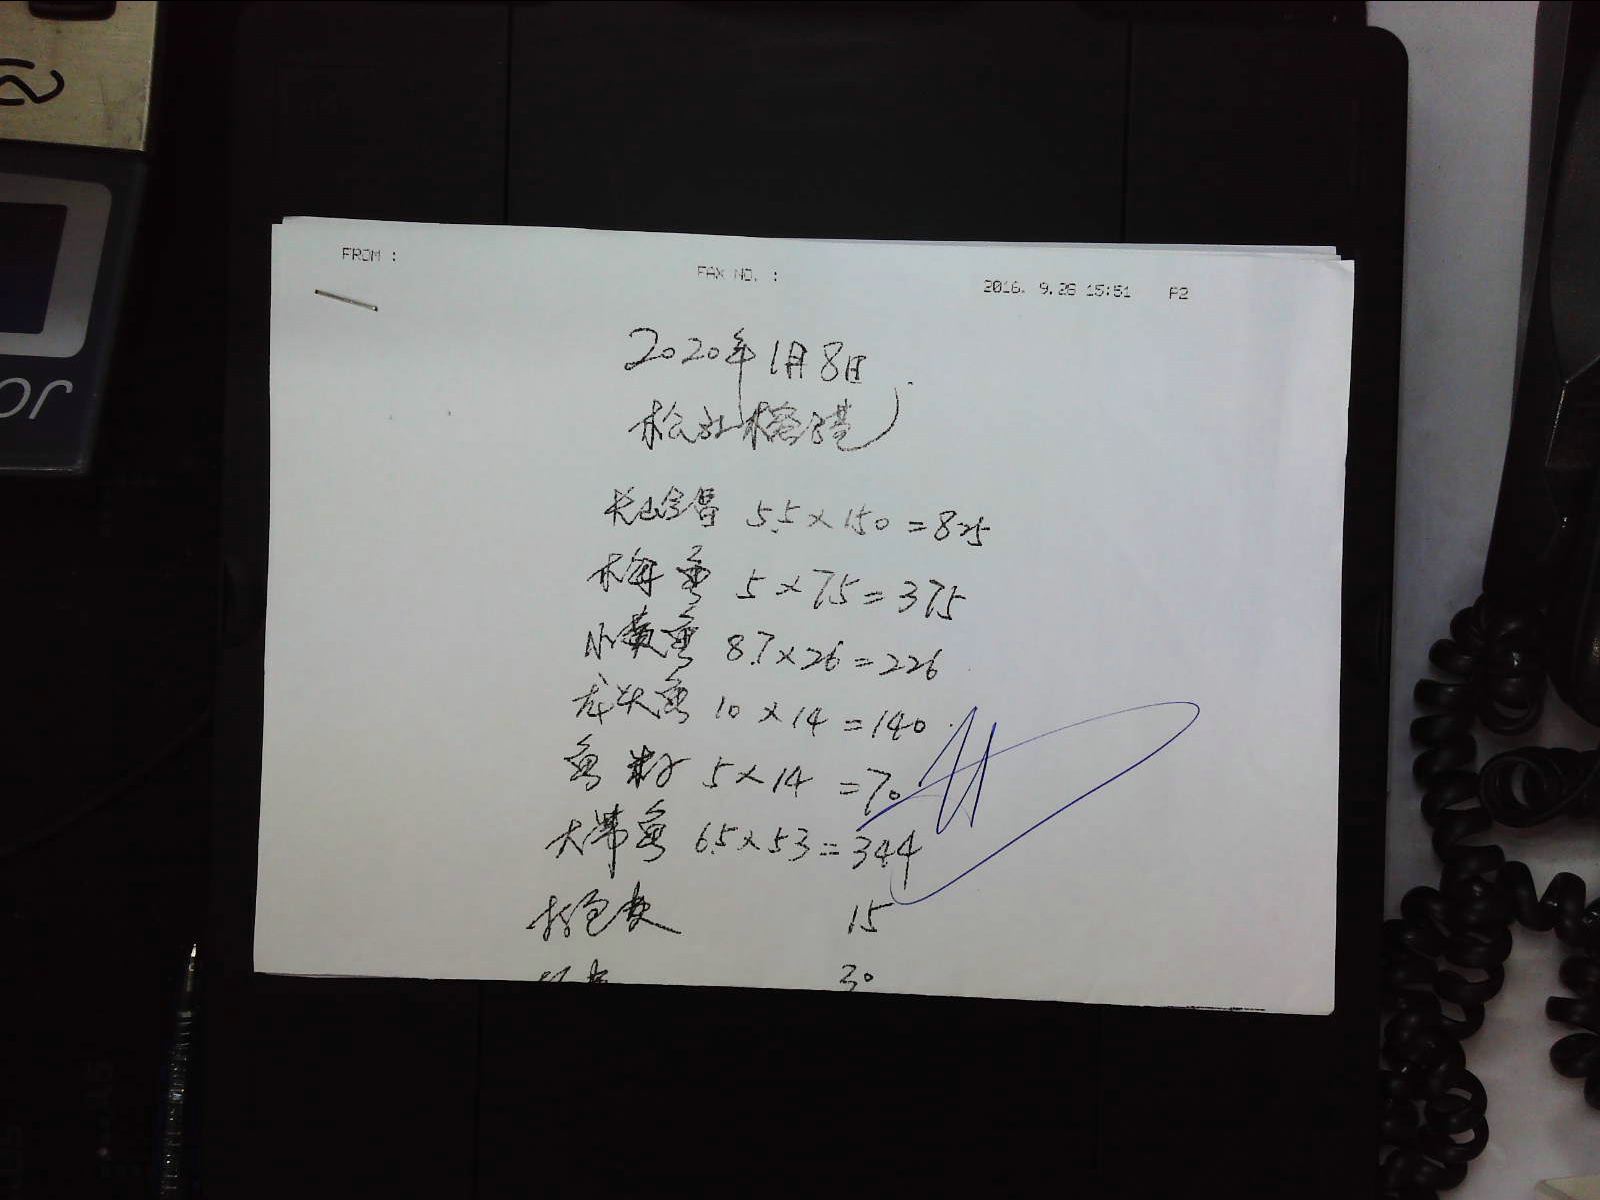 FROM :
FAX NO. :
2016. 9.28 15:51 P2
2020年1月8日
5.5×150=825
梅鱼 5×75=375
小黄鱼 8.7×26=226
龙头鱼 10×14=140
鱼 5×14=70
大带鱼 6.5×53=344
打包费 15
30
or